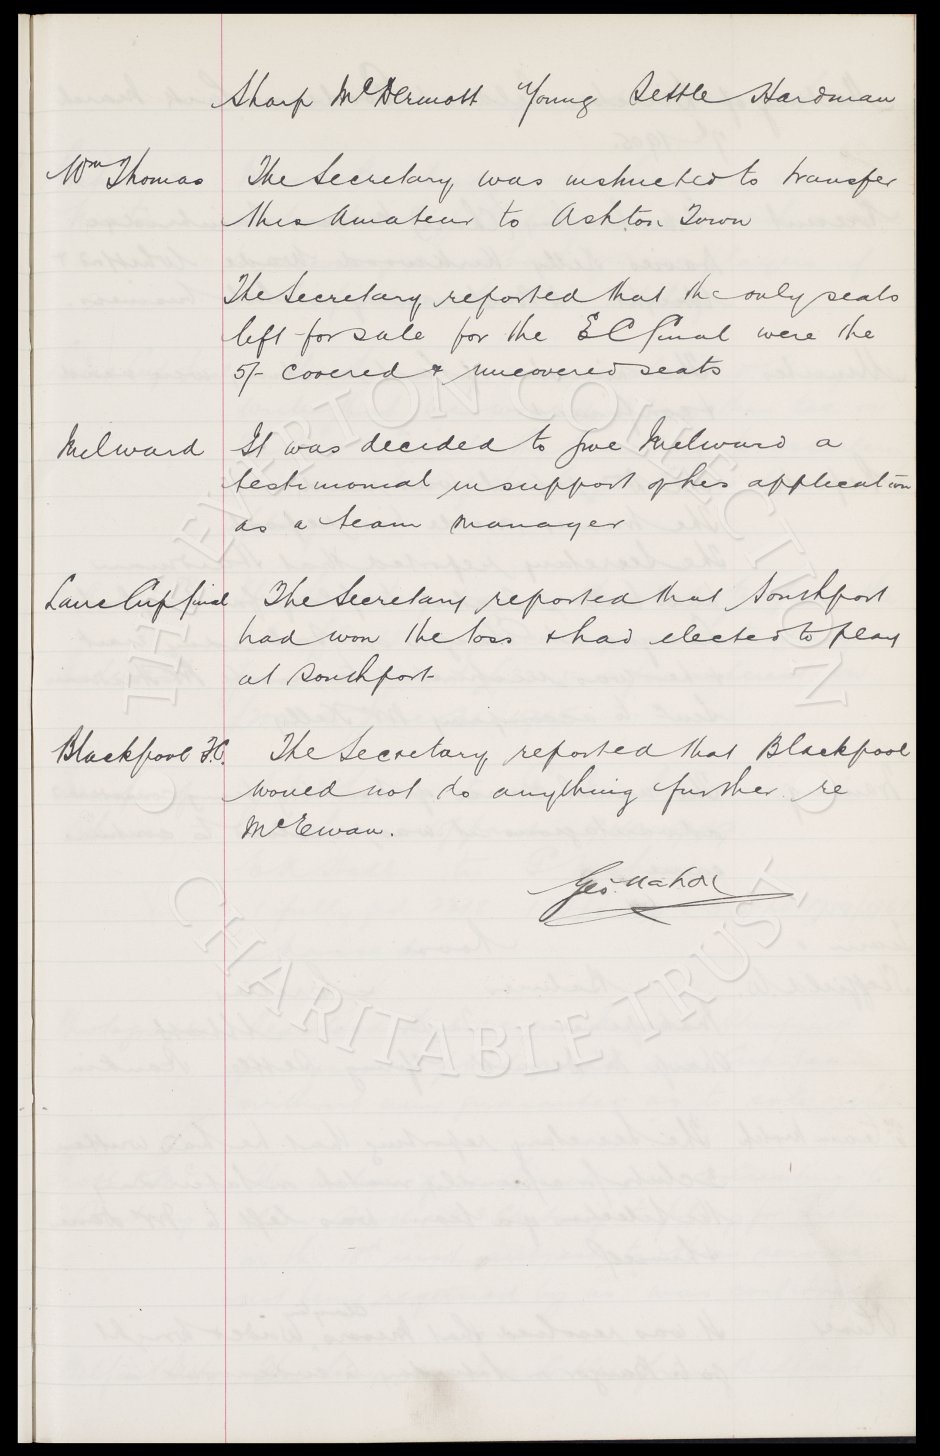 Sharp McDermott Young Settle Hardman
Wm Thomas The Secretary was instructed to transfer
this Amateur to Ashton Town
The Secretary reported that the only seats
left for sale for the E C final were the
5/- covered & uncovered seats
Melward It was decided to give Melward a
testimonial in support of his application
as a team manager
Lanc Cup final The Secretary reported that Southport
had won the toss & had elected to play
at Southport
Blackpool F.C. The Secretary reported that Blackpool
would not do anything further re
McEwan.
Geo. Mahon
THE EVERTON COLLECTION
CHARITABLE TRUST